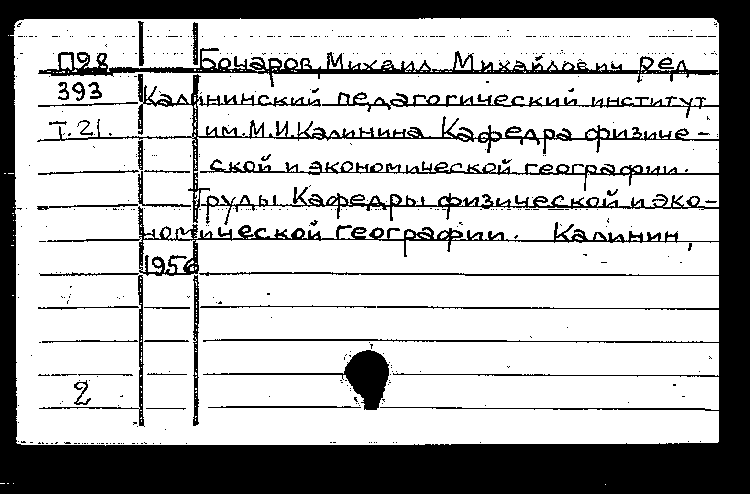 П98 Бочаров, Михаил Михайлович ред
393 Калининский педагогический институт
Т.21. им. М.И. Калинина. Кафедра физиче-
ской и экономической географии.
Труды Кафедры физической и эко-
номической географии. Калинин,
1956
2